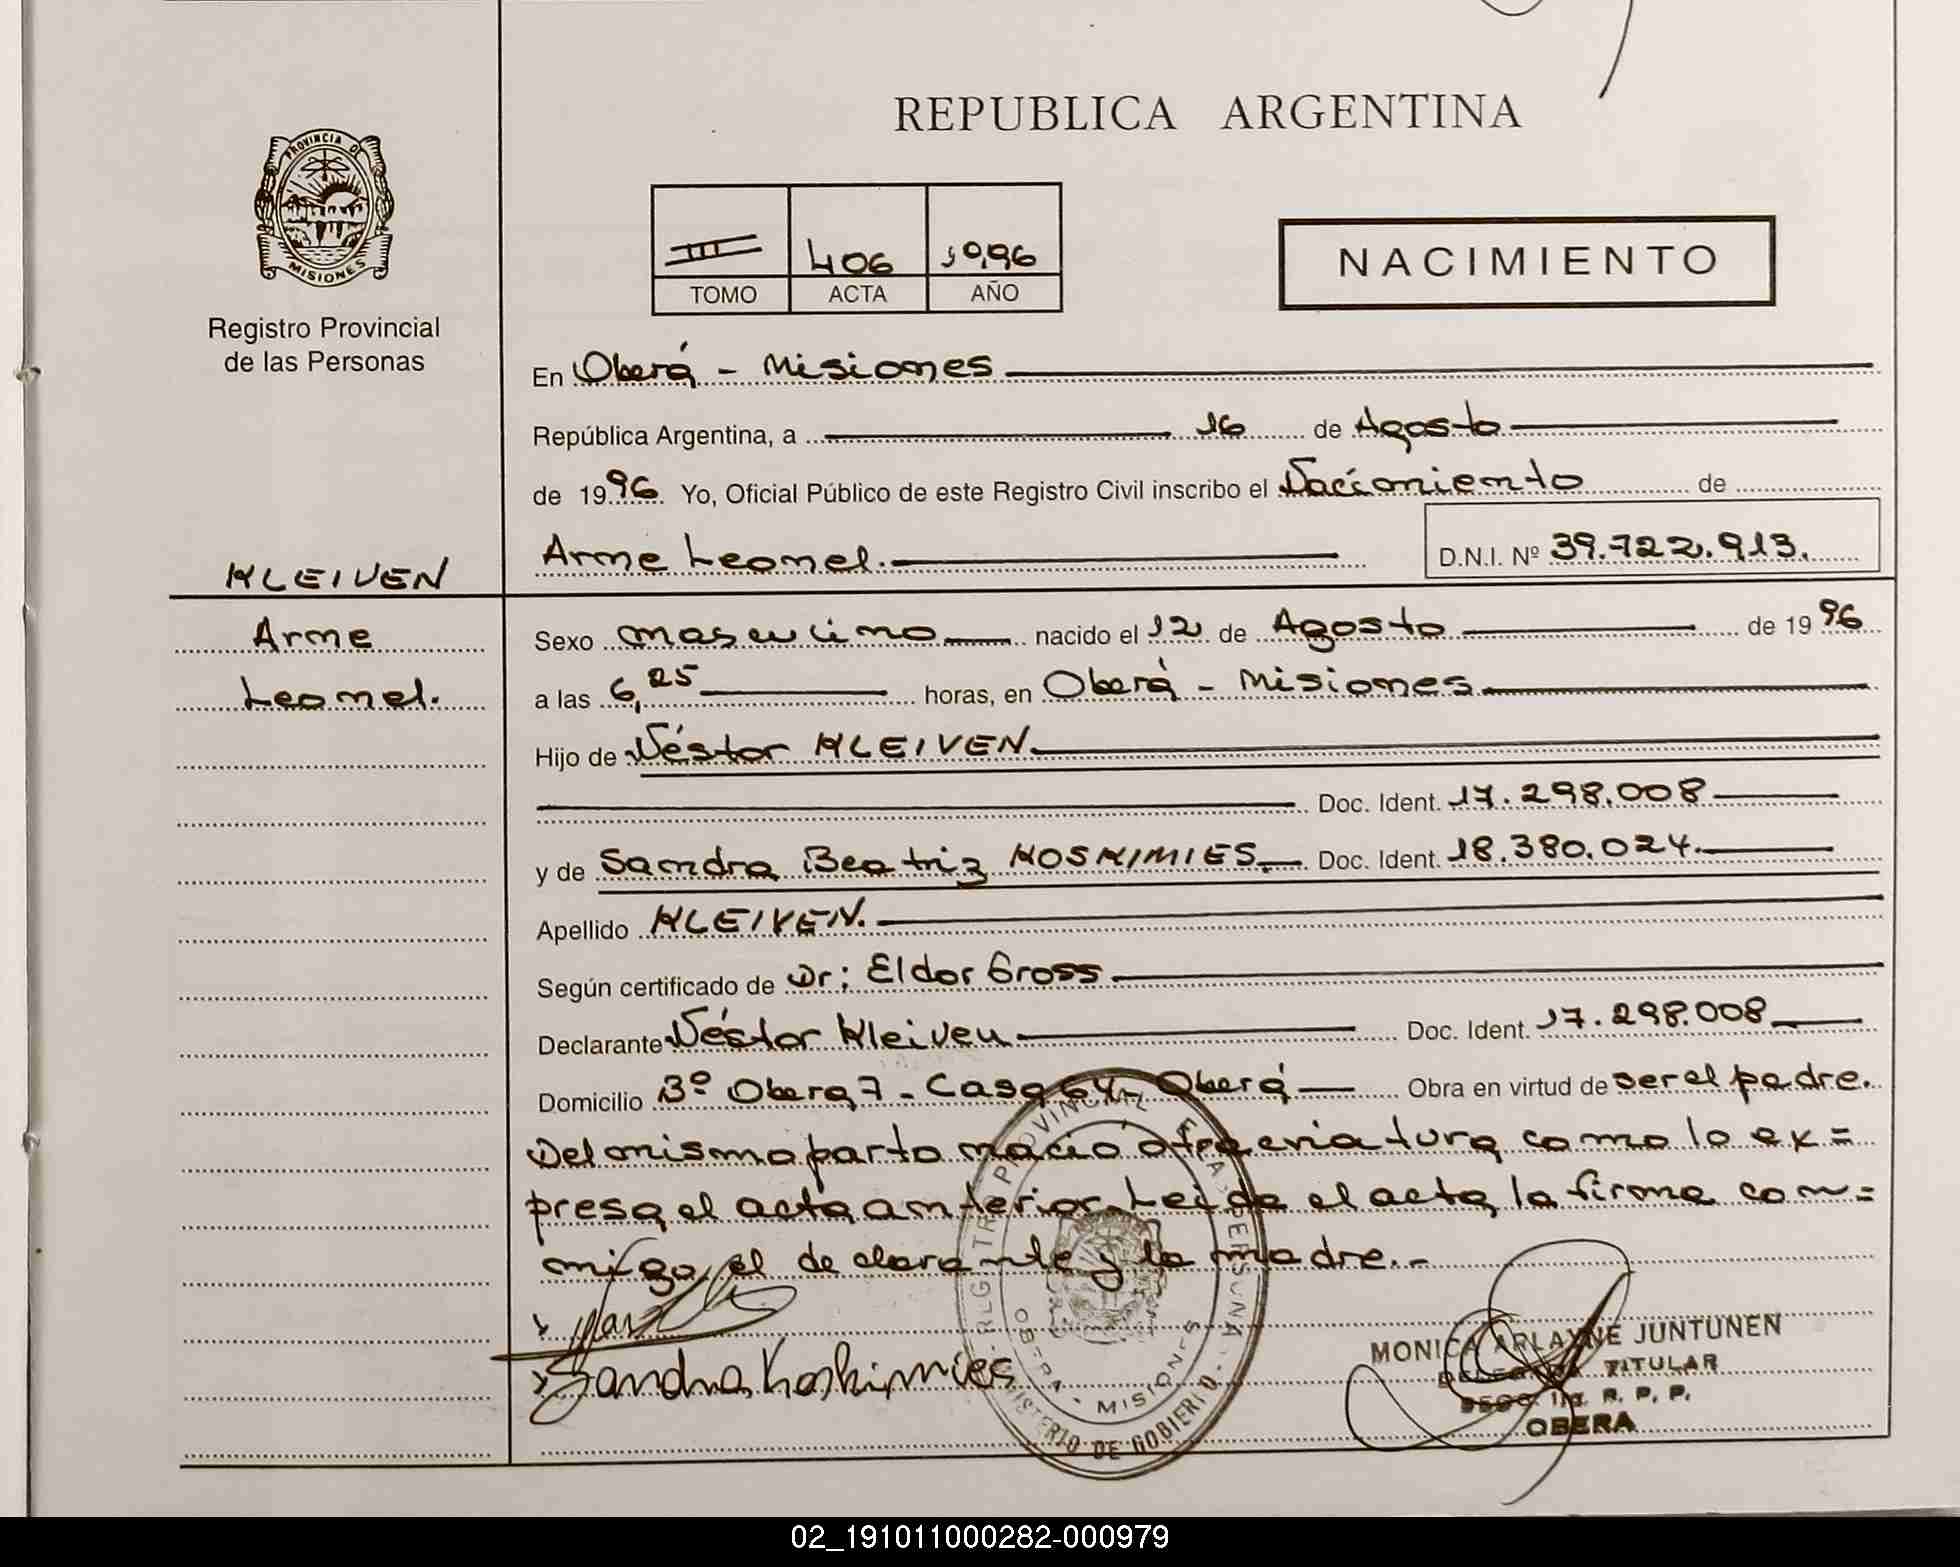 REPUBLICA ARGENTINA
PROVINCIA DE
MISIONES
Registro Provincial
de las Personas
III 406 1996
TOMO ACTA AÑO
NACIMIENTO
En Oberá - Misiones
República Argentina, a 16 de Agosto
de 1996. Yo, Oficial Público de este Registro Civil inscribo el Nacimiento de
Arne Leonel.
D.N.I. Nº 39.722.913.
KLEIVEN
Arne
Leonel.
Sexo masculino nacido el 12 de Agosto de 1996
a las 6,25 horas, en Oberá - Misiones
Hijo de Néstor KLEIVEN.
Doc. Ident. 17.298.008
y de Sandra Beatriz KOSKIMIES. Doc. Ident. 18.380.024.
Apellido KLEIVEN.
Según certificado de Dr; Eldor Gross
Declarante Néstor Kleiven Doc. Ident. 17.298.008
Domicilio Bº Obera 7 - Casa 64 - Oberá Obra en virtud de ser el padre.
Del mismo parto nació otra criatura como lo ex=
presa el acta anterior. Leida el acta la firma con=
migo, el declarante y la madre.-
Sandra Koskimies
REGISTRO PROVINCIAL DE LAS PERSONAS
OBERA - MISIONES
MINISTERIO DE GOBIERNO
MONICA ARLAYNE JUNTUNEN
DELEGADA TITULAR
R. P. P.
OBERA
02_191011000282-000979